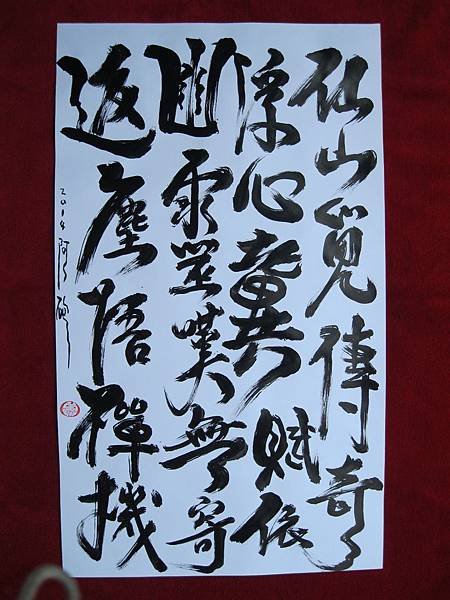 仙山覓傳奇
浮心冀賦依
斷靈嘆無寄
返塵悟禪機
2014 阿